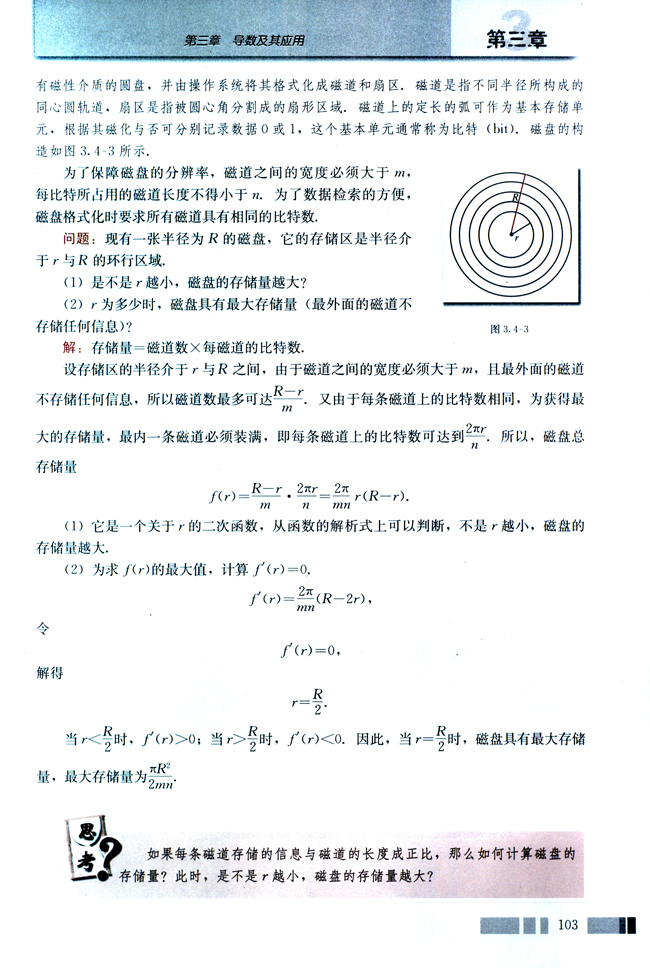 第三章 导数及其应用
第三章
有磁性介质的圆盘，并由操作系统将其格式化成磁道和扇区．磁道是指不同半径所构成的
同心圆轨道，扇区是指被圆心角分割成的扇形区域．磁道上的定长的弧可作为基本存储单
元，根据其磁化与否可分别记录数据 0 或 1，这个基本单元通常称为比特（bit）．磁盘的构
造如图 3.4-3 所示．
为了保障磁盘的分辨率，磁道之间的宽度必须大于 m，
每比特所占用的磁道长度不得小于 n．为了数据检索的方便，
磁盘格式化时要求所有磁道具有相同的比特数．
问题：现有一张半径为 R 的磁盘，它的存储区是半径介
于 r 与 R 的环行区域．
（1）是不是 r 越小，磁盘的存储量越大？
（2）r 为多少时，磁盘具有最大存储量（最外面的磁道不
存储任何信息）？
R
r
图 3.4-3
解：存储量＝磁道数×每磁道的比特数．
设存储区的半径介于 r 与 R 之间，由于磁道之间的宽度必须大于 m，且最外面的磁道
不存储任何信息，所以磁道数最多可达 (R－r)/m．又由于每条磁道上的比特数相同，为获得最
大的存储量，最内一条磁道必须装满，即每条磁道上的比特数可达到 2πr/n．所以，磁盘总
存储量
f(r)＝(R－r)/m · 2πr/n＝2π/mn r(R－r)．
（1）它是一个关于 r 的二次函数，从函数的解析式上可以判断，不是 r 越小，磁盘的
存储量越大．
（2）为求 f(r)的最大值，计算 f′(r)＝0．
f′(r)＝2π/mn (R－2r)，
令
f′(r)＝0，
解得
r＝R/2．
当 r＜R/2 时，f′(r)＞0；当 r＞R/2 时，f′(r)＜0．因此，当 r＝R/2 时，磁盘具有最大存储
量，最大存储量为 πR²/2mn．
思考？
如果每条磁道存储的信息与磁道的长度成正比，那么如何计算磁盘的
存储量？此时，是不是 r 越小，磁盘的存储量越大？
103